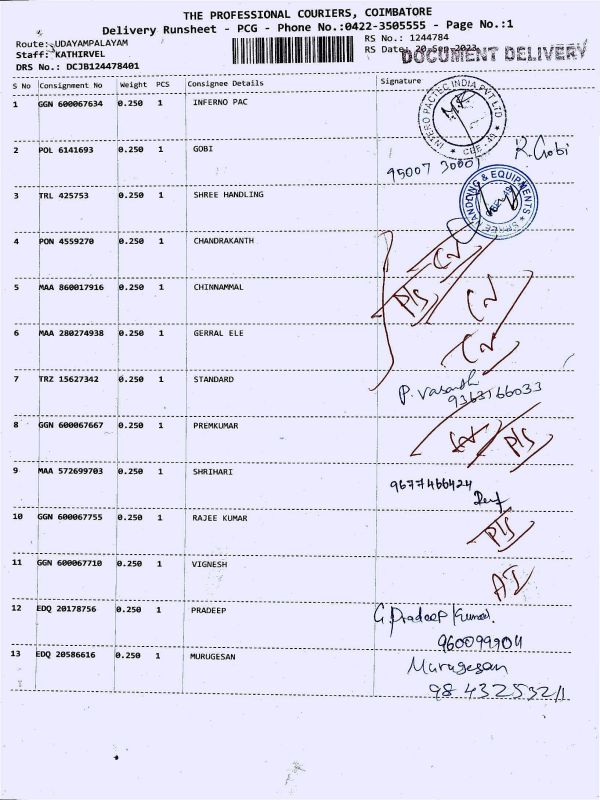 THE PROFESSIONAL COURIERS, COIMBATORE
Delivery Runsheet - PCG - Phone No.:0422-3505555 - Page No.:1
Route: UDAYAMPALAYAM
RS No.: 1244784
Staff: KATHIRVEL
RS Date: 20-Sep-2023
DOCUMENT DELIVERY
DRS No.: DCJB124478401
S No Consignment No Weight PCS Consignee Details Signature
1 GGN 600067634 0.250 1 INFERNO PAC
INTERO PACTEC INDIA PVT LTD
2 POL 6141693 0.250 1 GOBI
R. Gobi
95007 30001
3 TRL 425753 0.250 1 SHREE HANDLING
SHREE HANDLING & EQUIPMENTS
4 PON 4559270 0.250 1 CHANDRAKANTH
P/S
5 MAA 860017916 0.250 1 CHINNAMMAL
6 MAA 280274938 0.250 1 GERRAL ELE
7 TRZ 15627342 0.250 1 STANDARD
P. Vasanth
9363166033
8 GGN 600067667 0.250 1 PREMKUMAR
P/S
9 MAA 572699703 0.250 1 SHRIHARI
9677466424
10 GGN 600067755 0.250 1 RAJEE KUMAR
P/S
11 GGN 600067710 0.250 1 VIGNESH
AI
12 EDQ 20178756 0.250 1 PRADEEP
G. Pradeep Kumar.
960099904
13 EDQ 20586616 0.250 1 MURUGESAN
Murugesan
98 432532/1